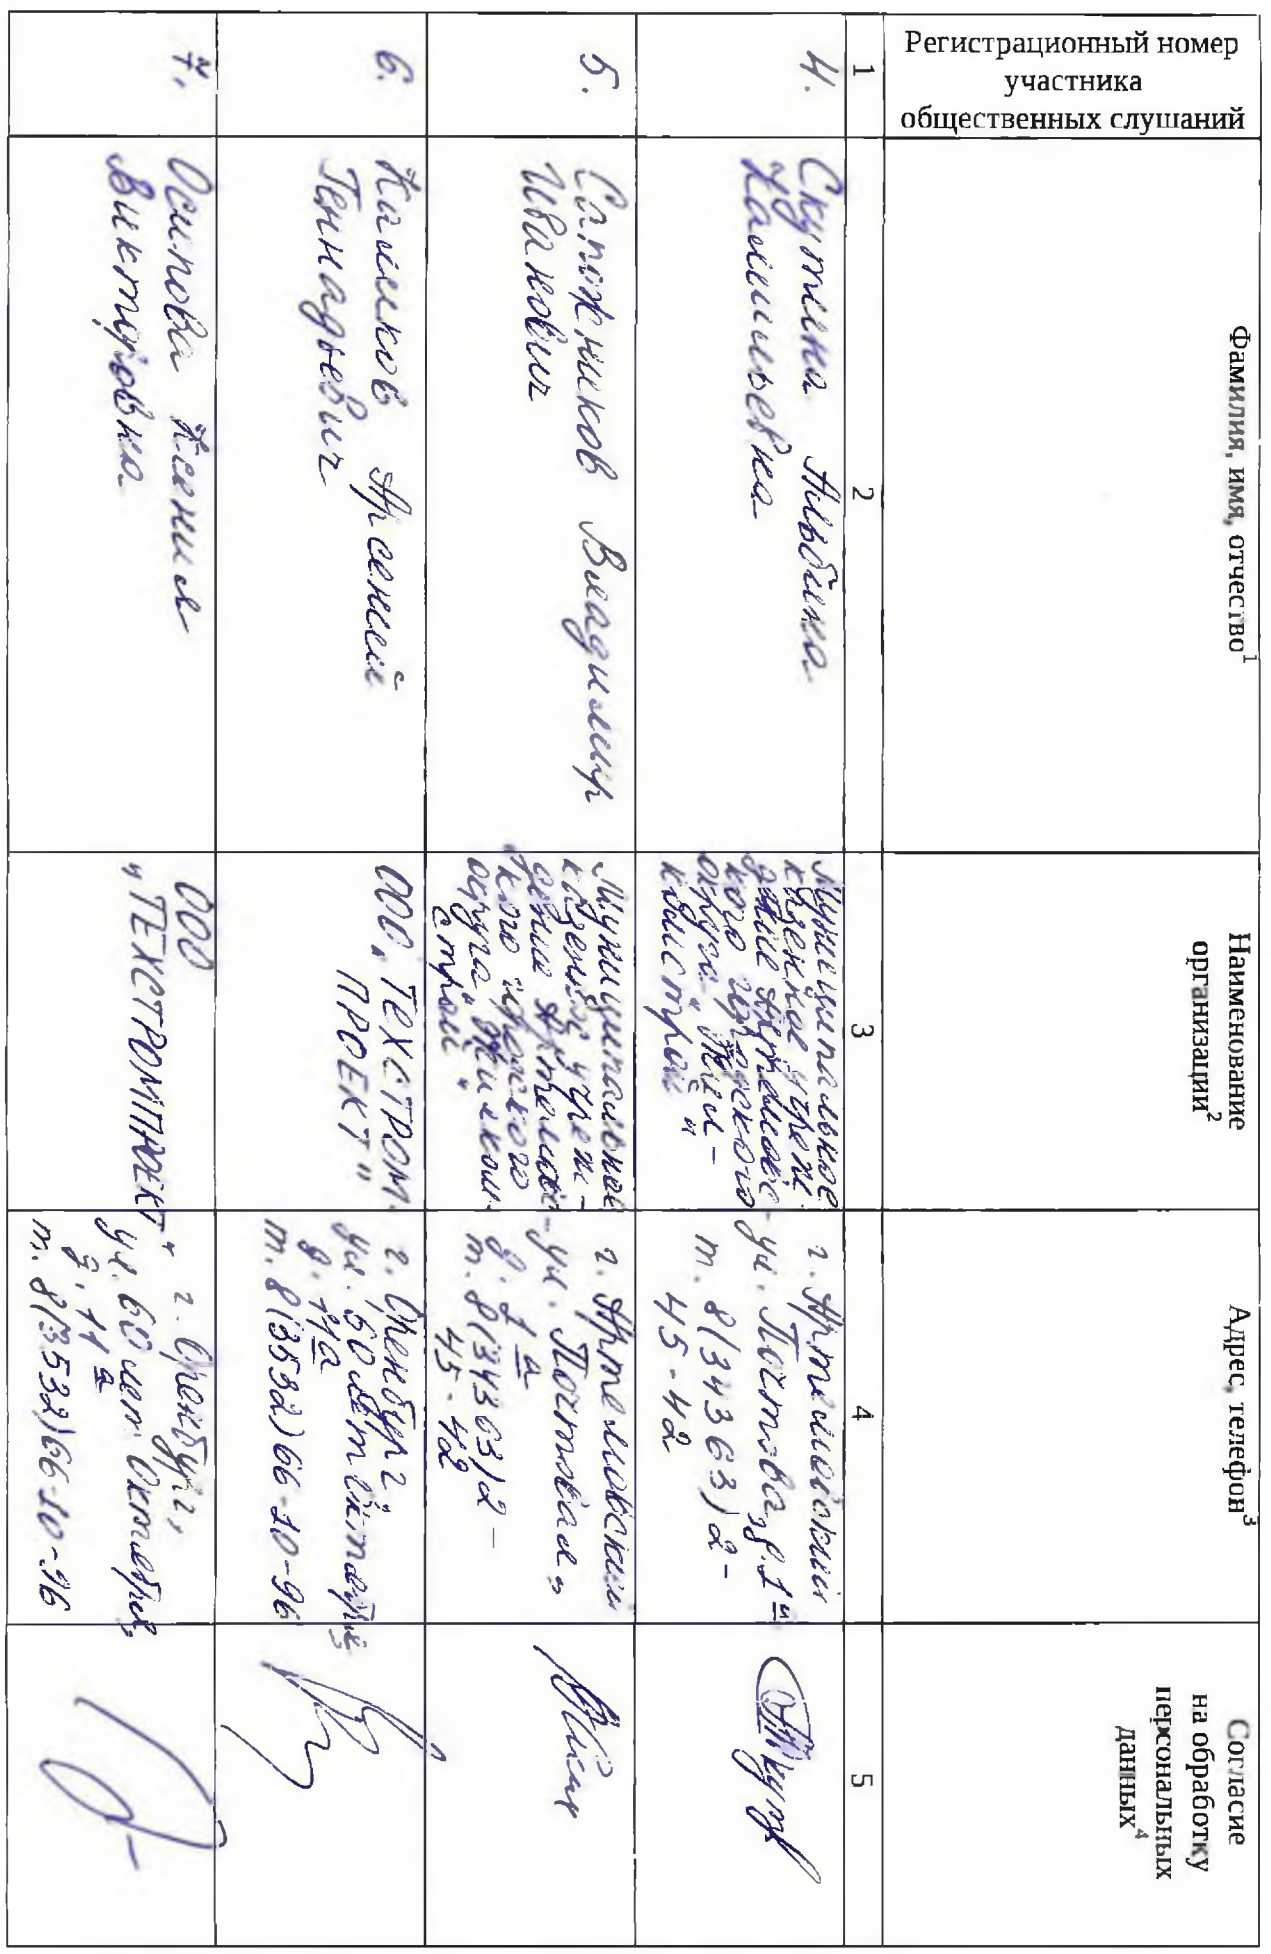 Регистрационный номер
участника
общественных слушаний
Фамилия, имя, отчество¹
Наименование
организации²
Адрес, телефон³
Согласие
на обработку
персональных
данных⁴
1
2
3
4
5
4.
Скутина Альбина
Камильевна
Муниципальное
казенное учреж-
дение Артемовс-
кого городского
округа "Жил-
комстрой"
г. Артемовский
ул. Почтовая, д. 1а
т. 8(34363)2-
45-42
5.
Сапожников Владимир
Иванович
Муниципальное
казенное учреж-
дение Артемовс-
кого городского
округа "Жилком-
строй"
г. Артемовский
ул. Почтовая,
д. 1а
т. 8(34363)2-
45-42
6.
Калмыков Арсений
Геннадьевич
ООО "ТЕХСТРОМ-
ПРОЕКТ"
г. Оренбург,
ул. 60 лет Октября,
д. 11а
т. 8(3532)66-10-96
7.
Осипова Ксения
Викторовна
ООО
"ТЕХСТРОМПРОЕКТ"
г. Оренбург,
ул. 60 лет Октября,
д. 11а
т. 8(3532)66-10-96